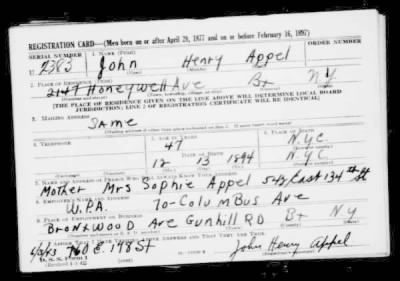 REGISTRATION CARD—(Men born on or after April 28, 1877 and on or before February 16, 1897)
SERIAL NUMBER 1. NAME (Print) ORDER NUMBER
U 2383 John Henry Appel
(First) (Middle) (Last)
2. PLACE OF RESIDENCE (Print)
2147 Honeywell Ave Bx NY
[THE PLACE OF RESIDENCE GIVEN ON THE LINE ABOVE WILL DETERMINE LOCAL BOARD
JURISDICTION; LINE 2 OF REGISTRATION CERTIFICATE WILL BE IDENTICAL]
3. MAILING ADDRESS
SAME
4. TELEPHONE 5. AGE IN YEARS 6. PLACE OF BIRTH
47 N.Y.C.
DATE OF BIRTH
12 13 1894 N.Y.C.
7. NAME AND ADDRESS OF PERSON WHO WILL ALWAYS KNOW YOUR ADDRESS
Mother Mrs Sophie Appel 543 East 134th St
8. EMPLOYER'S NAME AND ADDRESS
W.P.A. 70-Columbus Ave
9. PLACE OF EMPLOYMENT OR BUSINESS
Bronxwood Ave Gunhill RD Bx NY
I AFFIRM THAT I HAVE VERIFIED ABOVE ANSWERS AND THAT THEY ARE TRUE.
760 E. 178 St
D. S. S. Form 1 John Henry Appel